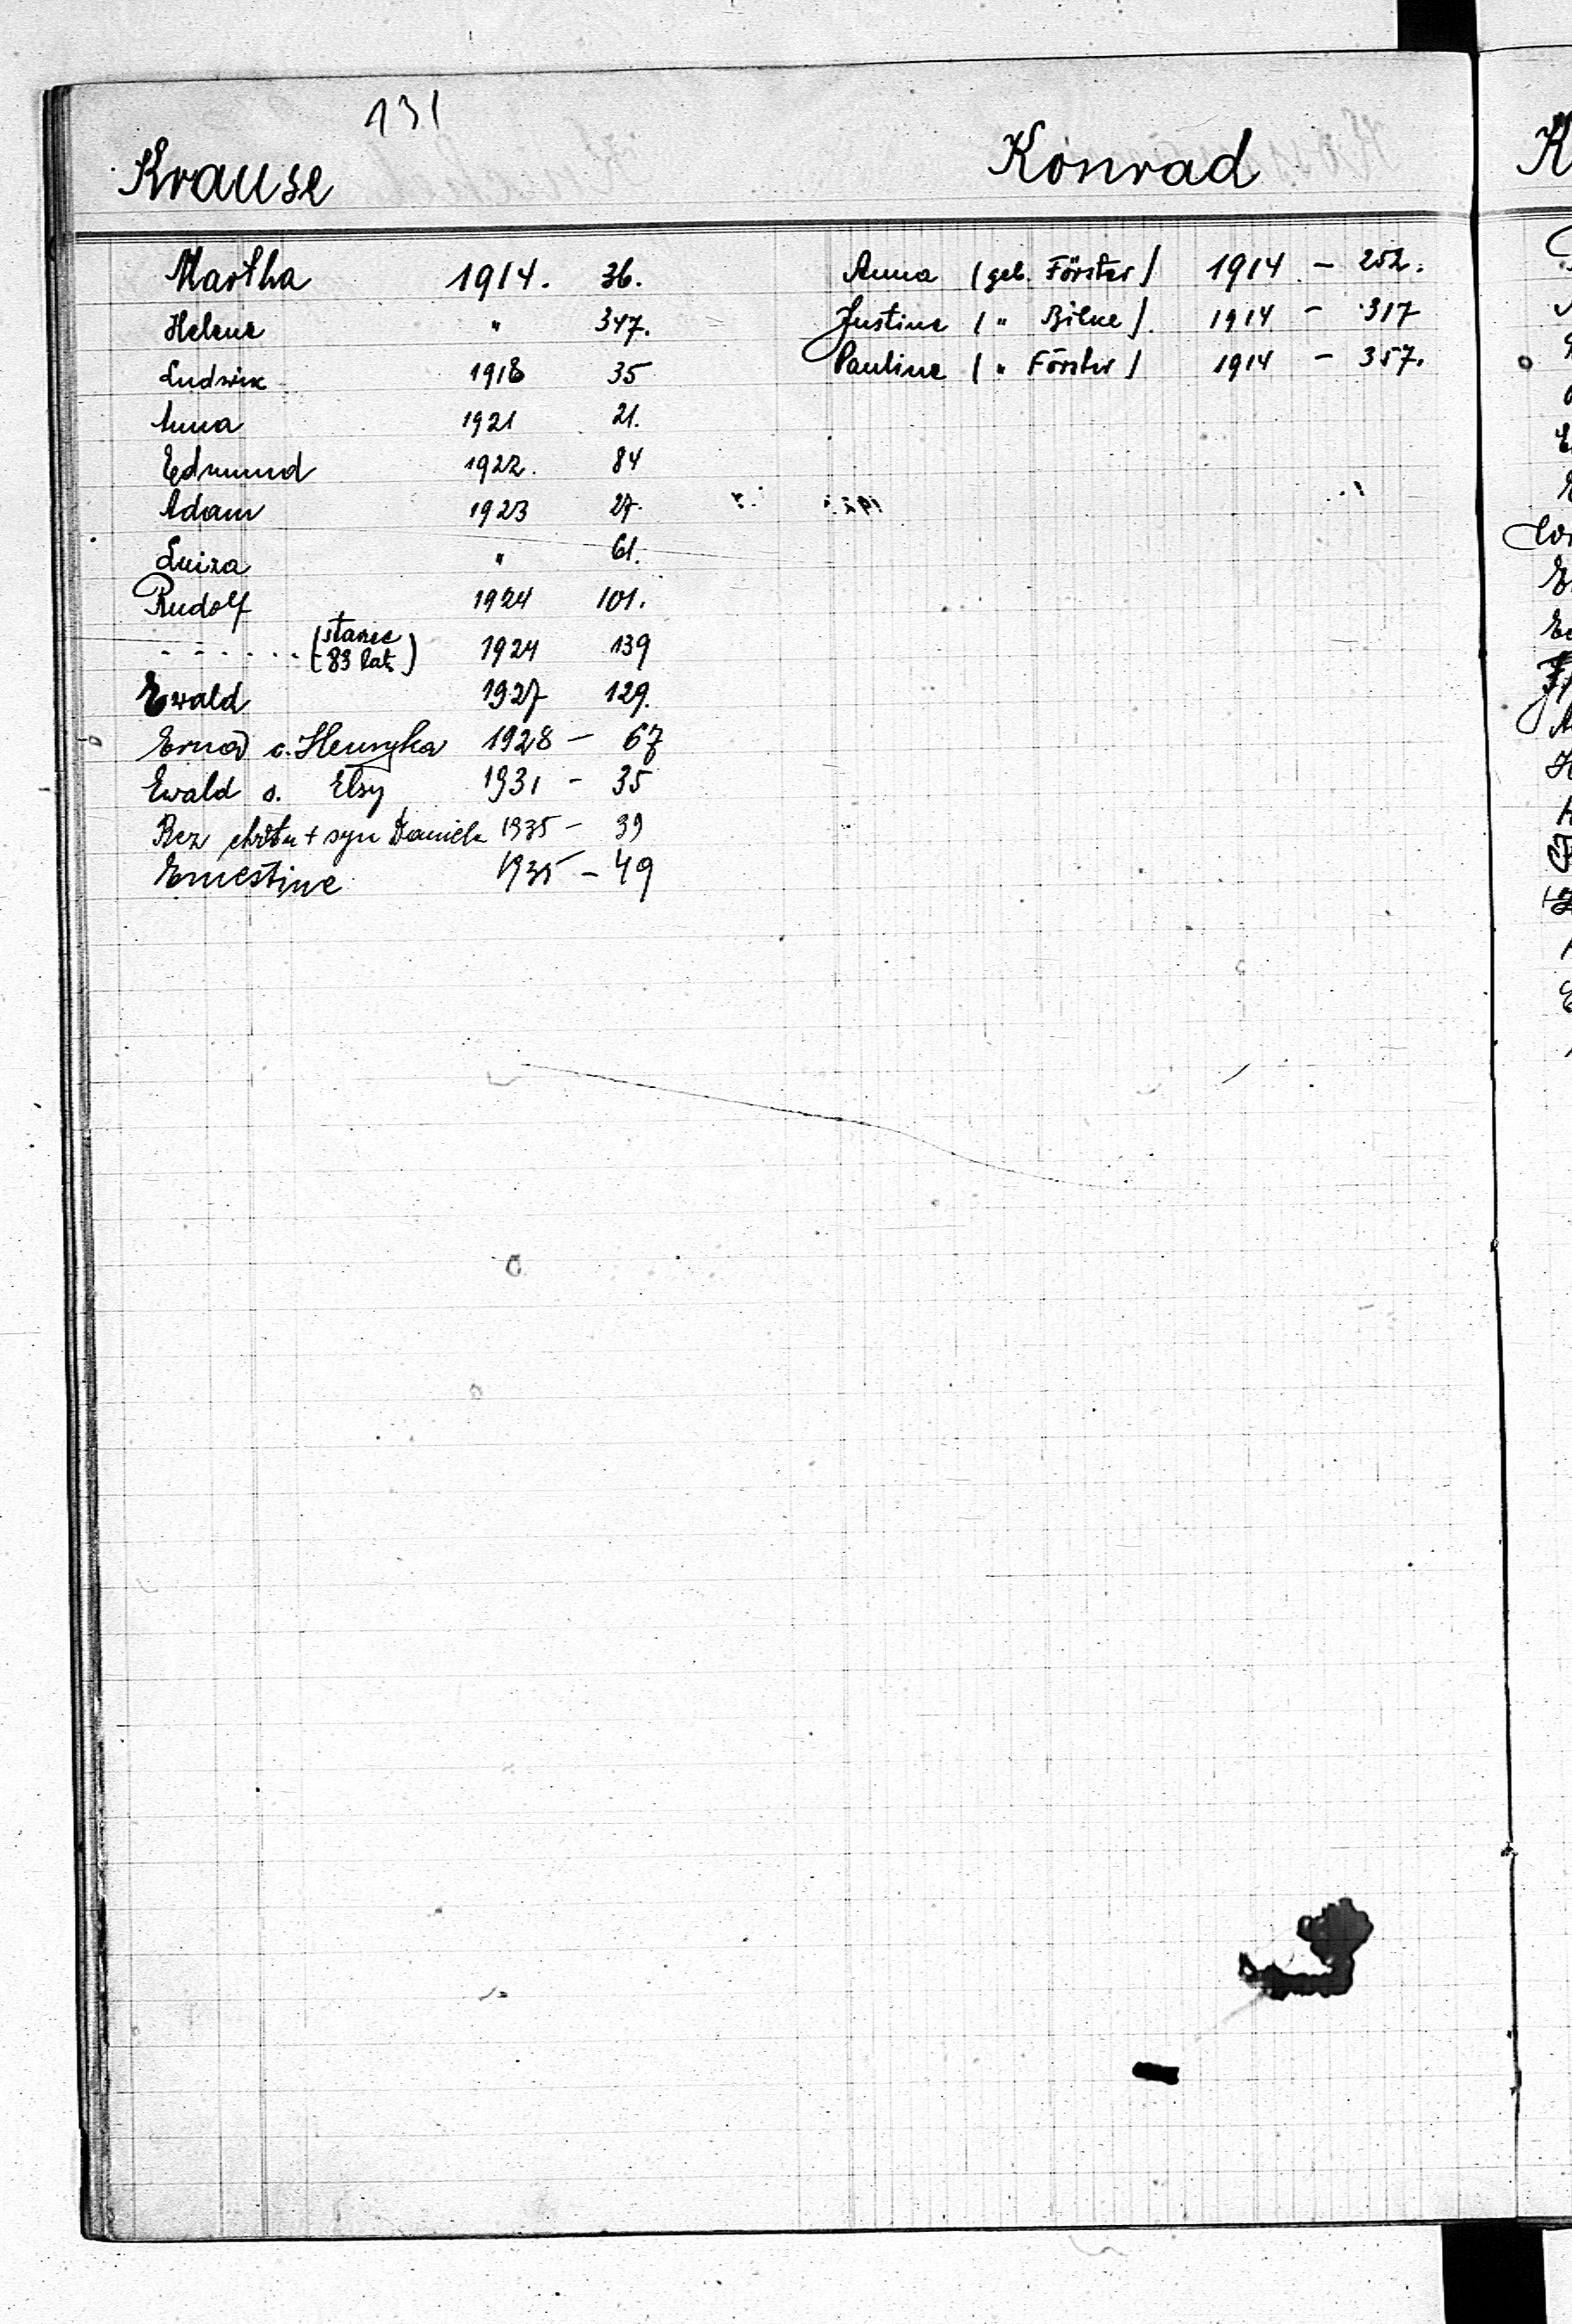 131
Krause
Martha 1914. 36.
Helene " 347.
Ludwik 1918 35
Anna 1921 21.
Edmund 1922. 84
Adam 1923 27.
Luiza " 61.
Rudolf 1924 101.
- - - - - - (starzec
83 lat) 1924 139
Ewald 1927 129.
Erna c. Henryka 1928 - 67
Ewald s. Elsy 1931 - 35
Bez chrztu + syn Daniela 1935 - 39
Ernestine 1935 - 49
Konrad
Anna (geb. Förster) 1914 - 252.
Justine ( " Bilke). 1914 - 317
Pauline ( " Förster) 1914 - 357.